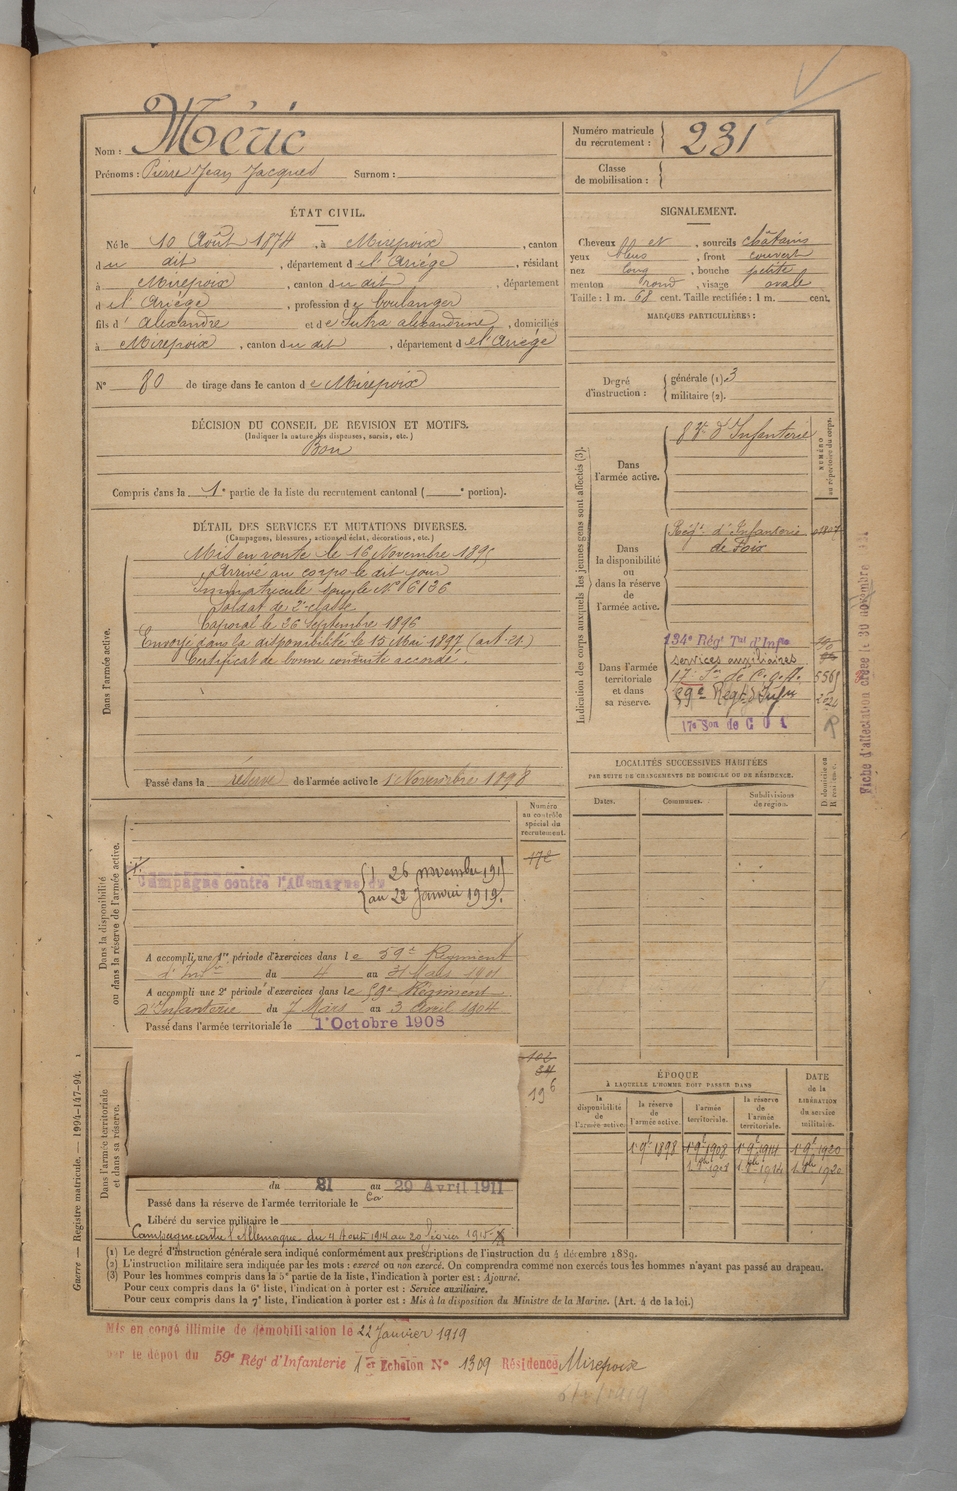 Nom : Méric
Prénoms : Pierre Jean Jacques Surnom :
Numéro matricule du recrutement : 231
Classe de mobilisation :
ÉTAT CIVIL.
Né le 10 Août 1874, à Mirepoix, canton
du dit, département de l'Ariège, résidant
à Mirepoix, canton du dit, département
de l'Ariège, profession de boulanger
fils d'Alexandre et de Sutra alexandrine, domiciliés
à Mirepoix, canton du dit, département de l'Ariège
N° 80 de tirage dans le canton de Mirepoix
SIGNALEMENT.
Cheveux et, sourcils châtains
yeux bleus, front couvert
nez long, bouche petite
menton rond, visage ovale
Taille : 1 m. 68 cent. Taille rectifiée : 1 m. cent.
MARQUES PARTICULIÈRES :
Degré d'instruction : générale (1) 3
militaire (2).
DÉCISION DU CONSEIL DE REVISION ET MOTIFS.
(Indiquer la nature des dispenses, sursis, etc.)
Bon
Compris dans la 1e partie de la liste du recrutement cantonal ( e portion).
DÉTAIL DES SERVICES ET MUTATIONS DIVERSES.
(Campagnes, blessures, actions d'éclat, décorations, etc.)
Dans l'armée active.
Mis en route le 16 Novembre 1895
Arrivé au corps le dit jour
Immatriculé sous le N° 6136
Soldat de 2e classe
Caporal le 26 Septembre 1896
Envoyé dans la disponibilité le 15 Mai 1897 (art. 21)
Certificat de bonne conduite accordé.
Passé dans la réserve de l'armée active le 1 Novembre 1898
Indication des corps auxquels les jeunes gens sont affectés (3).
NUMÉRO au répertoire du corps.
Dans l'armée active.
d'Infanterie
Dans la disponibilité ou dans la réserve de l'armée active.
Régt d'Infanterie
de Foix
Dans l'armée territoriale et dans sa réserve.
134e Régt Tal d'Infie
services auxiliaires
17e Son de C.O.A.
59e Regt d'Infie
17e Son de C O A
Fiche d'affectation créée le 30 novembre
LOCALITÉS SUCCESSIVES HABITÉES
PAR SUITE DE CHANGEMENTS DE DOMICILE OU DE RÉSIDENCE.
Dates. Communes. Subdivisions de région. D. domicile ou R. résidence.
Numéro au contrôle spécial du recrutement.
172
Dans la disponibilité ou dans la réserve de l'armée active.
Campagne contre l'Allemagne du
26 novembre 191
au 22 Janvier 1919.
A accompli une 1re période d'exercices dans le 59e Régiment
d'Infie du 4 au 31 Mars 1901
A accompli une 2e période d'exercices dans le 59e Régiment
d'Infanterie du 7 Mars au 3 Avril 1904
Passé dans l'armée territoriale le 1er Octobre 1908
Dans l'armée territoriale et dans sa réserve.
196
du 21 au 29 Avril 1911
Passé dans la réserve de l'armée territoriale le
Libéré du service militaire le
Campagne contre l'Allemagne du 4 Août 1914 au 20 février 1915
ÉPOQUE
À LAQUELLE L'HOMME DOIT PASSER DANS
la disponibilité de l'armée active. la réserve de l'armée active. l'armée territoriale. la réserve de l'armée territoriale.
DATE de la LIBÉRATION du service militaire.
1 9bre 1898 1 9bre 1908 1 9bre 1914 1 9bre 1920
(1) Le degré d'instruction générale sera indiqué conformément aux prescriptions de l'instruction du 4 décembre 1889.
(2) L'instruction militaire sera indiquée par les mots : exercé ou non exercé. On comprendra comme non exercés tous les hommes n'ayant pas passé au drapeau.
(3) Pour les hommes compris dans la 5e partie de la liste, l'indication à porter est : Ajourné.
Pour ceux compris dans la 6e liste, l'indication à porter est : Service auxiliaire.
Pour ceux compris dans la 7e liste, l'indication à porter est : Mis à la disposition du Ministre de la Marine. (Art. 4 de la loi.)
Guerre — Registre matricule. — 1994-147-94.
Mis en congé illimité de démobilisation le 22 Janvier 1919
par le dépôt du 59e Régt d'Infanterie 1er Echelon N° 1309 Résidence Mirepoix